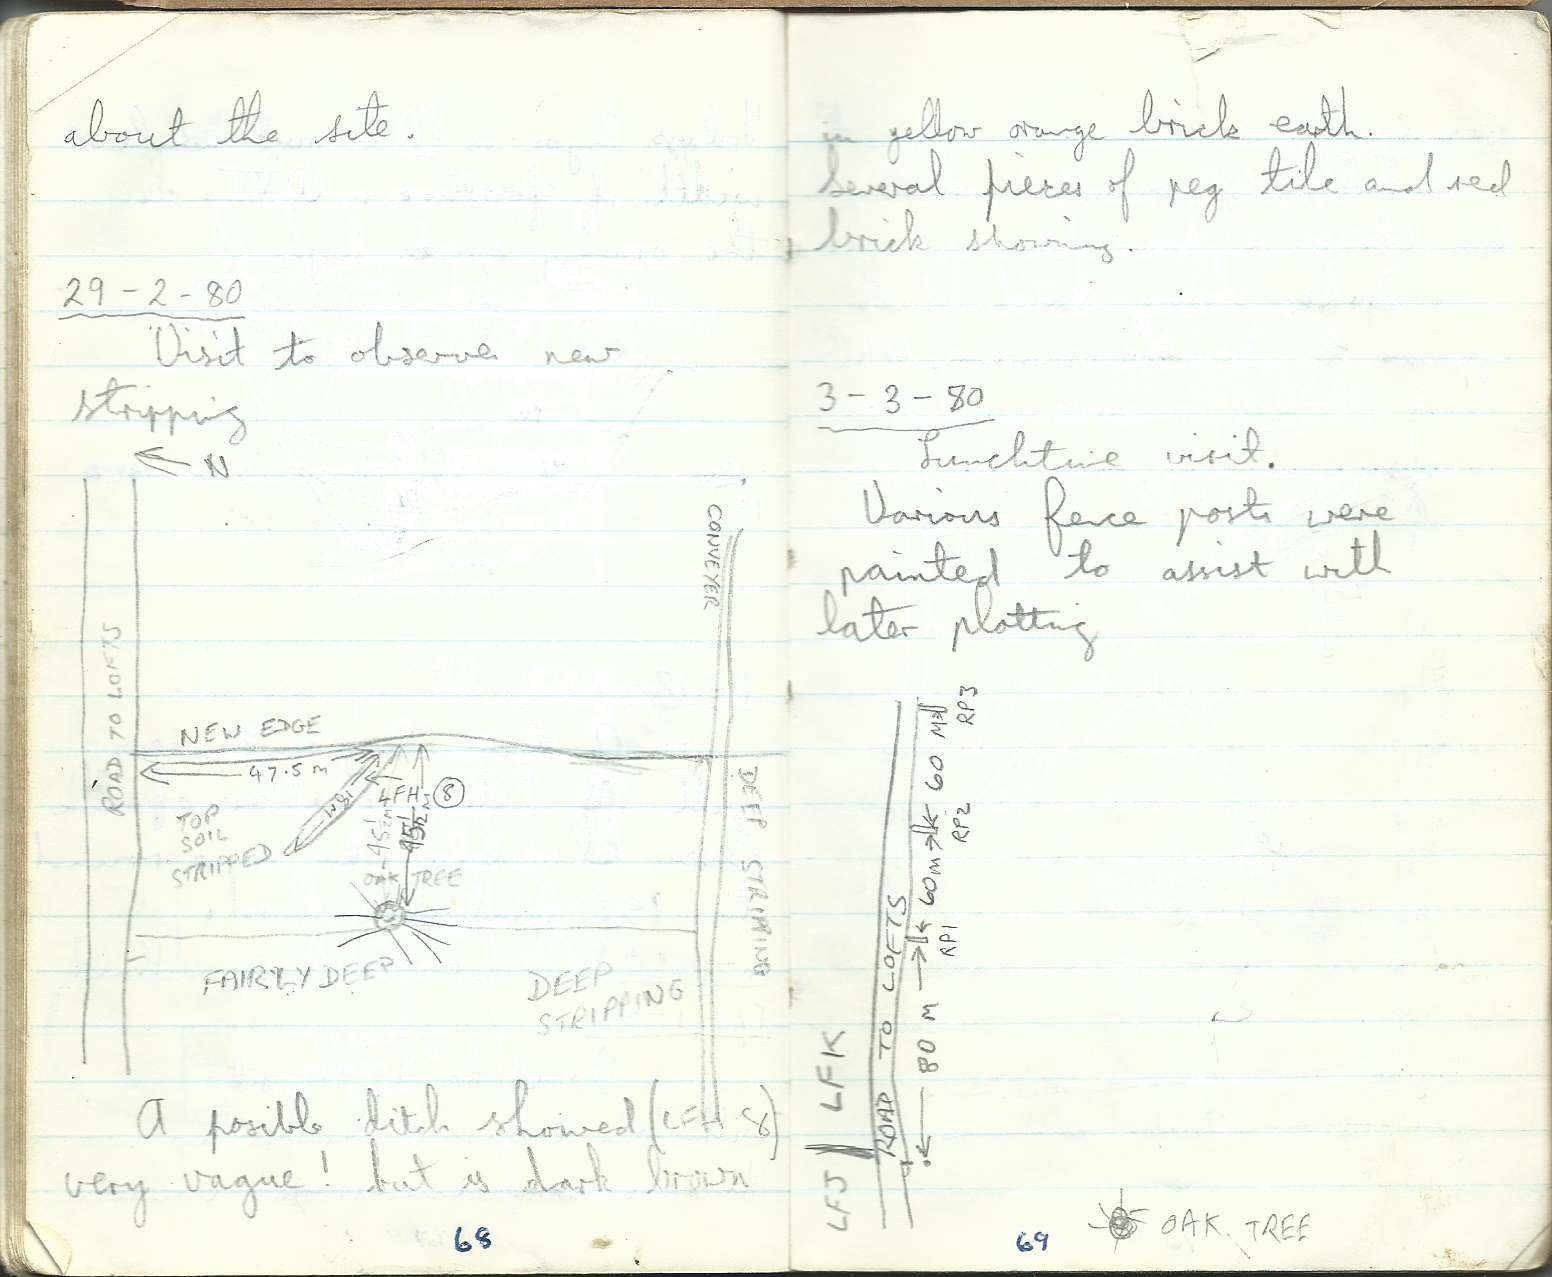 about the site.
29-2-80
Visit to observe new
stripping
N
CONVEYER
ROAD TO LOFTS
NEW EDGE
47.5 m
18M
LFH 8
45½ M
45½ M
TOP
SOIL
STRIPPED
OAK TREE
DEEP STRIPPING
FAIRLY DEEP
DEEP
STRIPPING
A posible ditch showed (LFH 8)
very vague! but is dark brown
68
in yellow orange brick earth.
Several pieces of peg tile and red
brick showing.
3-3-80
Lunchtime visit.
Various fence posts were
painted to assist with
later plotting
RP3
60 M
RP2
60M
RP1
80 M
ROAD TO LOFTS
LFJ LFK
OAK TREE
69